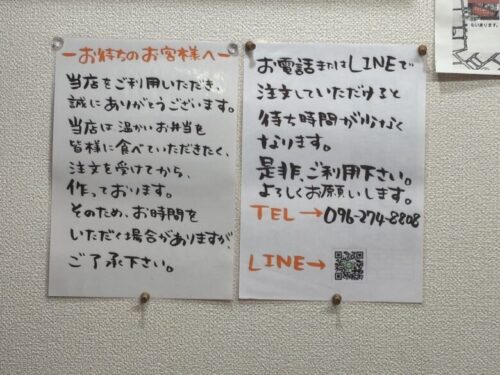 ーお待ちのお客様へー
当店をご利用いただき、
誠にありがとうございます。
当店は温かいお弁当を
皆様に食べていただきたく、
注文を受けてから、
作っております。
そのため、お時間を
いただく場合がありますが、
ご了承下さい。
お電話またはLINEで
注文していただけると
待ち時間が少なく
なります。
是非、ご利用下さい。
よろしくお願いします。
TEL→096-274-8808
LINE→